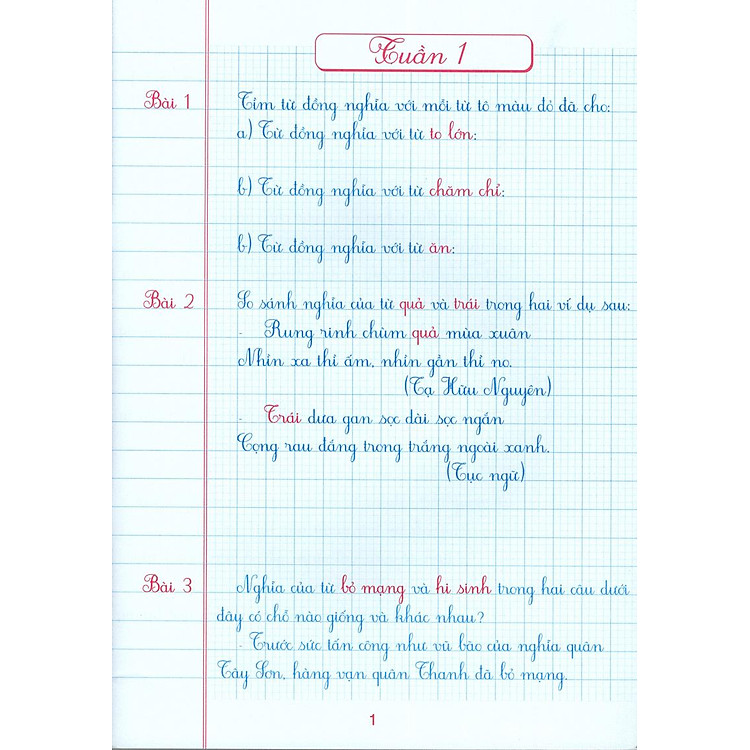 Tuần 1
Bài 1 Tìm từ đồng nghĩa với mỗi từ tô màu đỏ đã cho:
a) Từ đồng nghĩa với từ to lớn:
b) Từ đồng nghĩa với từ chăm chỉ:
b) Từ đồng nghĩa với từ ăn:
Bài 2 So sánh nghĩa của từ quả và trái trong hai ví dụ sau:
- Rung rinh chùm quả mùa xuân
Nhìn xa thì ấm, nhìn gần thì no.
(Tạ Hữu Nguyên)
- Trái dưa gan sọc dài sọc ngắn
Cọng rau đắng trong trắng ngoài xanh.
(Tục ngữ)
Bài 3 Nghĩa của từ bỏ mạng và hi sinh trong hai câu dưới
đây có chỗ nào giống và khác nhau?
- Trước sức tấn công như vũ bão của nghĩa quân
Tây Sơn, hàng vạn quân Thanh đã bỏ mạng.
1